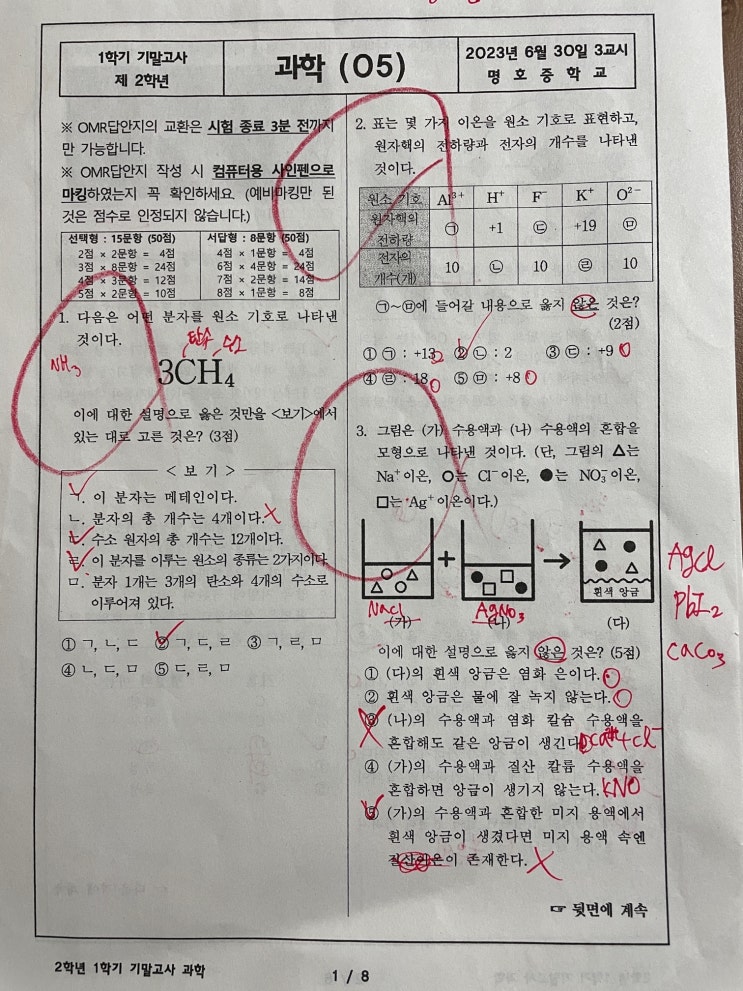 1학기 기말고사
제 2학년
과학 (05)
2023년 6월 30일 3교시
명 호 중 학 교
※ OMR답안지의 교환은 시험 종료 3분 전까지
만 가능합니다.
※ OMR답안지 작성 시 컴퓨터용 사인펜으로
마킹하였는지 꼭 확인하세요. (예비마킹만 된
것은 점수로 인정되지 않습니다.)
선택형 : 15문항 (50점) 서답형 : 8문항 (50점)
2점 × 2문항 = 4점 4점 × 1문항 = 4점
3점 × 8문항 = 24점 6점 × 4문항 = 24점
4점 × 3문항 = 12점 7점 × 2문항 = 14점
5점 × 2문항 = 10점 8점 × 1문항 = 8점
1. 다음은 어떤 분자를 원소 기호로 나타낸
것이다.
탄소 수소
NH₃
3CH₄
이에 대한 설명으로 옳은 것만을 <보기>에서
있는 대로 고른 것은? (3점)
< 보 기 >
ㄱ. 이 분자는 메테인이다.
ㄴ. 분자의 총 개수는 4개이다.
ㄷ. 수소 원자의 총 개수는 12개이다.
ㄹ. 이 분자를 이루는 원소의 종류는 2가지이다.
ㅁ. 분자 1개는 3개의 탄소와 4개의 수소로
이루어져 있다.
① ㄱ, ㄴ, ㄷ ② ㄱ, ㄷ, ㄹ ③ ㄱ, ㄹ, ㅁ
④ ㄴ, ㄷ, ㅁ ⑤ ㄷ, ㄹ, ㅁ
2. 표는 몇 가지 이온을 원소 기호로 표현하고,
원자핵의 전하량과 전자의 개수를 나타낸
것이다.
원소 기호 Al³⁺ H⁺ F⁻ K⁺ O²⁻
원자핵의 전하량 ㉠ +1 ㉢ +19 ㉤
전자의 개수(개) 10 ㉡ 10 ㉣ 10
㉠~㉤에 들어갈 내용으로 옳지 않은 것은?
(2점)
① ㉠ : +13 ② ㉡ : 2 ③ ㉢ : +9
④ ㉣ : 18 ⑤ ㉤ : +8
3. 그림은 (가) 수용액과 (나) 수용액의 혼합을
모형으로 나타낸 것이다. (단, 그림의 △는
Na⁺이온, ○는 Cl⁻이온, ●는 NO₃⁻이온,
□는 Ag⁺이온이다.)
흰색 앙금
NaCl AgNO₃
(가) (나) (다)
AgCl
PbI₂
CaCO₃
이에 대한 설명으로 옳지 않은 것은? (5점)
① (다)의 흰색 앙금은 염화 은이다.
② 흰색 앙금은 물에 잘 녹지 않는다.
③ (나)의 수용액과 염화 칼슘 수용액을
혼합해도 같은 앙금이 생긴다.
④ (가)의 수용액과 질산 칼륨 수용액을
혼합하면 앙금이 생기지 않는다.
KNO
⑤ (가)의 수용액과 혼합한 미지 용액에서
흰색 앙금이 생겼다면 미지 용액 속엔
질산이온이 존재한다.
☞ 뒷면에 계속
2학년 1학기 기말고사 과학
1 / 8